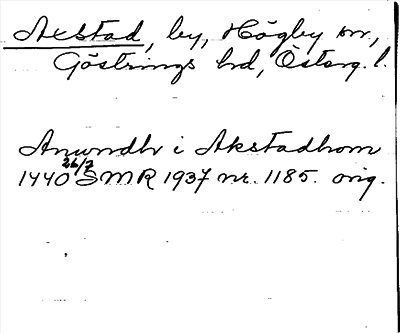 Axstad, by, Högby sn,
Göstrings hd, Österg. l.
Anundhr i Akstadhom
1440 26/7 SMR 1937 nr. 1185. orig.